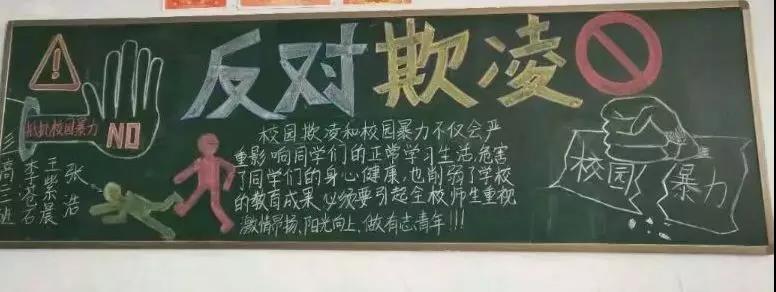 反对欺凌
校园暴力
NO
张浩
王紫晨
李苍石
高三班
校园欺凌和校园暴力不仅会严
重影响同学们的正常学习生活,危害
了同学们的身心健康,也削弱了学校
的教育成果,必须要引起全校师生重视
激情昂扬,阳光向上,做有志青年!!!
校园
暴力